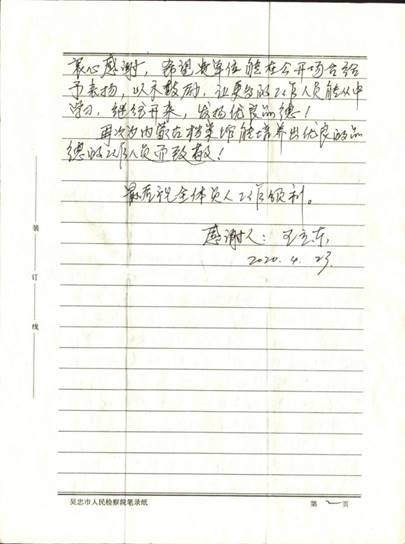 衷心感谢，希望贵单位能在公开场合给
予表扬，以示鼓励，让更多的工作人员能从中
学习，继往开来，发扬优良品德！
再次为内蒙古档案馆能培养出优良的品
德的工作人员而致敬！
最后祝全体员人工作顺利。
感谢人：王立东，
2020.4.23.
装订线
吴忠市人民检察院笔录纸
第 2 页